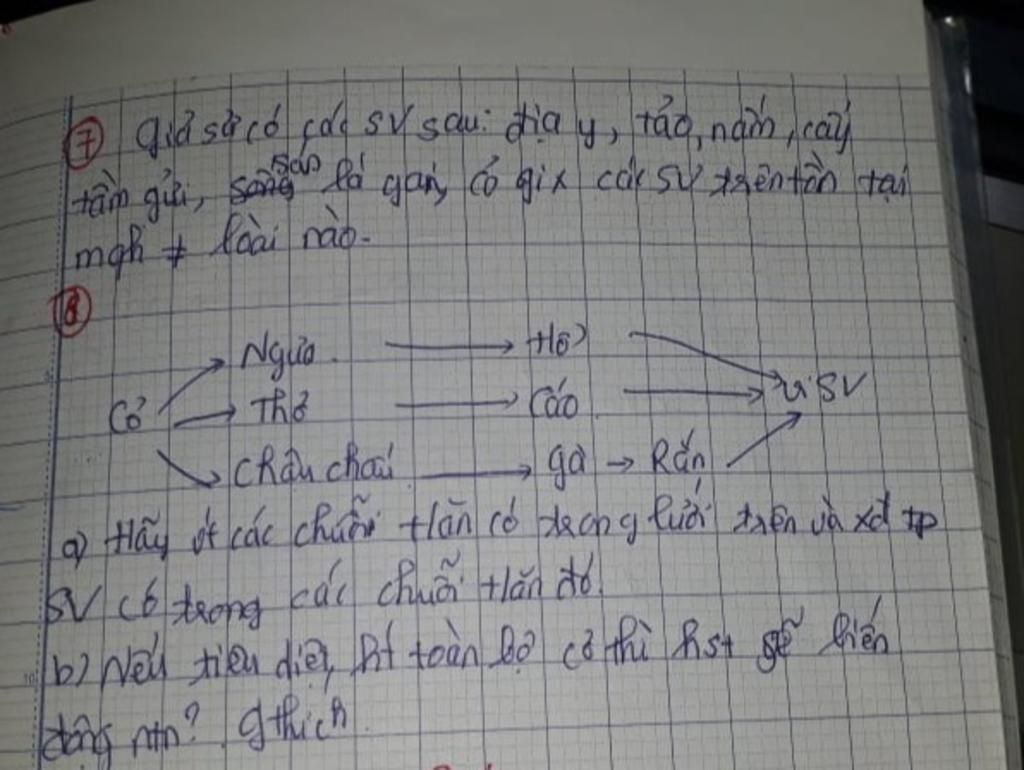 ⑦ Giả sử có các SV sau: địa y, tảo, nấm, cây
tầm gửi, sán lá gan, có giữa các SV trên tồn tại
mqh ≠ loài nào.
⑧
Ngựa → Hổ
Cỏ → Thỏ → Cáo → Vi SV
Châu chấu → gà → Rắn
a) Hãy viết các chuỗi t/ăn có trong lưới trên và xđ tp
SV có trong các chuỗi t/ăn đó.
b) Nếu tiêu diệt hết toàn bộ cỏ thì hst sẽ biến
động ntn? gthích